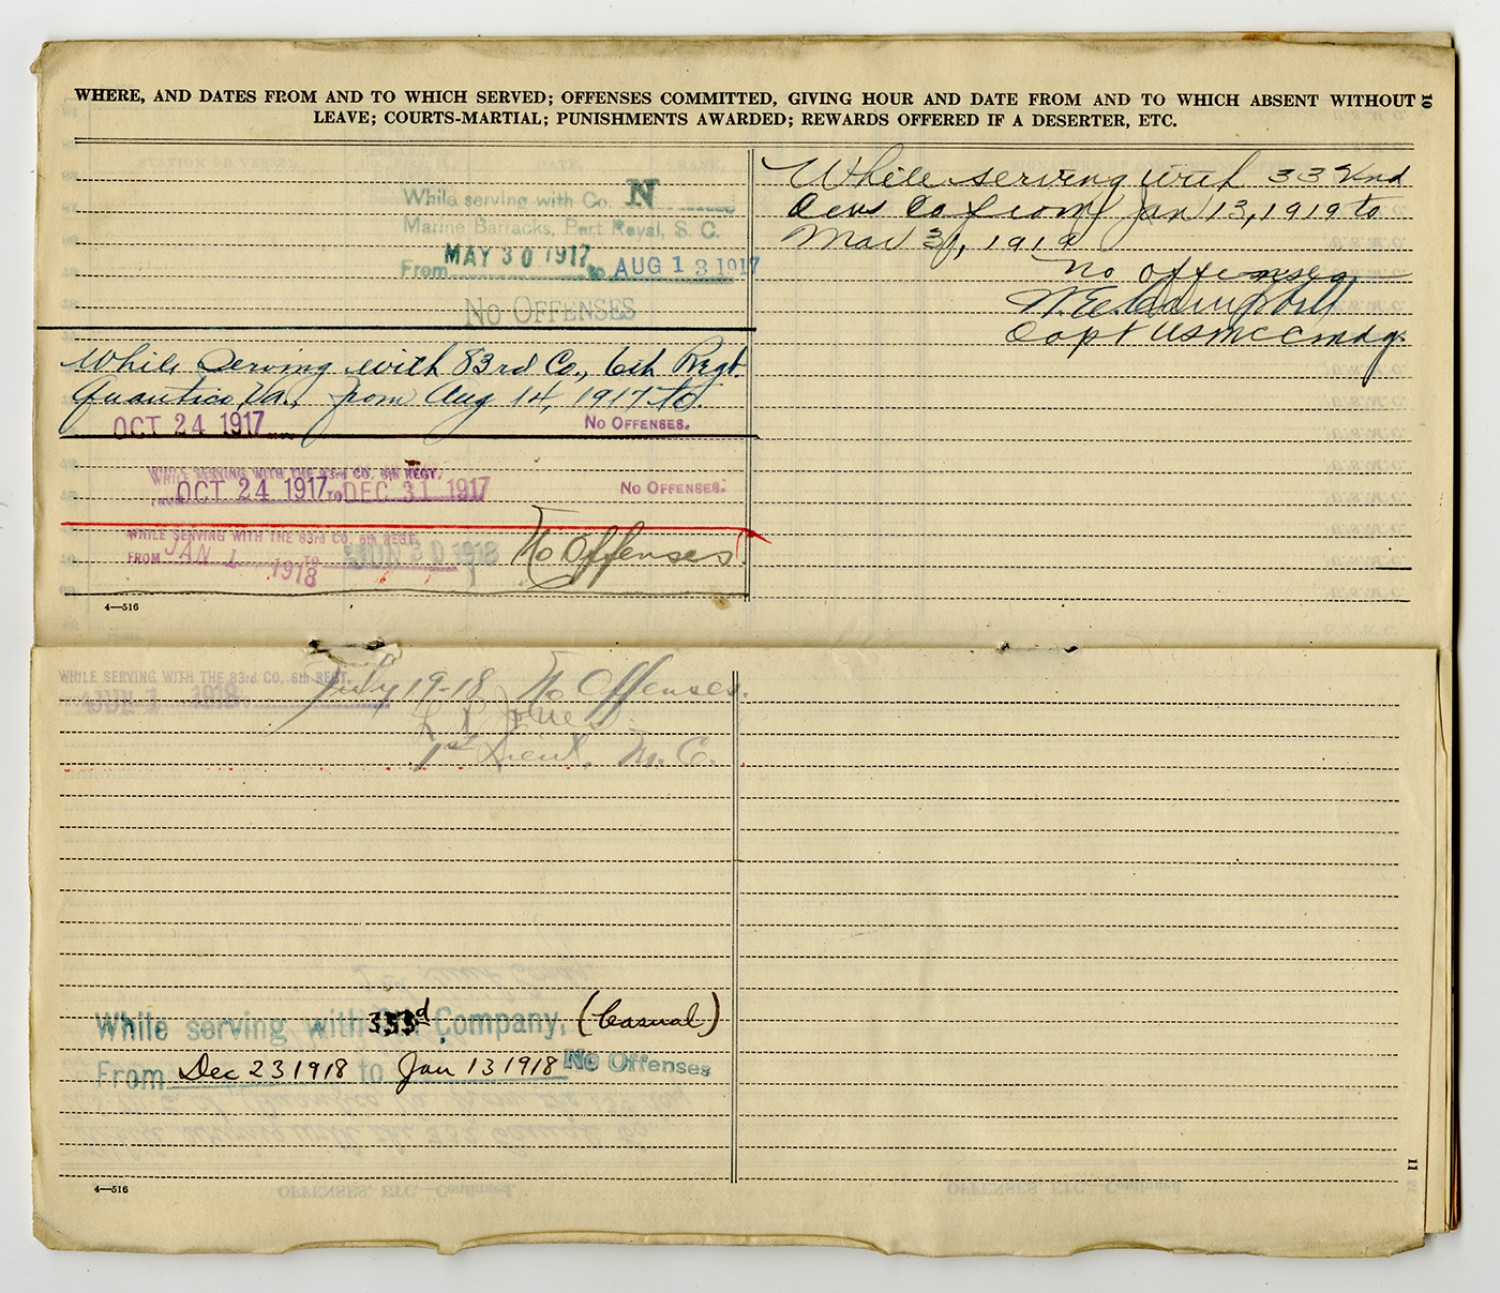 WHERE, AND DATES FROM AND TO WHICH SERVED; OFFENSES COMMITTED, GIVING HOUR AND DATE FROM AND TO WHICH ABSENT WITHOUT
LEAVE; COURTS-MARTIAL; PUNISHMENTS AWARDED; REWARDS OFFERED IF A DESERTER, ETC.
10
While serving with Co. N
Marine Barracks, Port Royal, S. C.
From MAY 30 1917 to AUG 13 1917
NO OFFENSES
While Serving with 83rd Co., 6th Regt.
Quantico, Va., from Aug 14, 1917 to
OCT 24 1917 NO OFFENSES.
WHILE SERVING WITH THE 83rd CO. 6th REGT.
FROM OCT 24 1917 TO DEC 31 1917 NO OFFENSES.
WHILE SERVING WITH THE 83rd CO. 6th REGT.
FROM JAN 1 1918 TO JUN 30 1918 No Offenses.
4—516
While serving with 332nd
Co from Jan 13, 1919 to
Mar 31, 1919
No offenses
Capt USMC Cmdg.
WHILE SERVING WITH THE 83rd CO. 6th REGT.
1 1918 July 19-18 No Offenses.
1st Lieut. M.C.
While serving with 353d Company, (Casual)
From Dec 23 1918 to Jan 13 1918 No Offenses
4—516
11